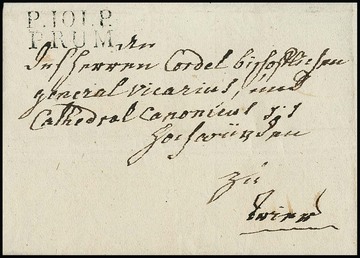 P.101.P.
PRUM
An
Des Herren Cordel bischöflichen
general Vicarius, und
Cathedral Canonicus
Hochwürden
Zu
Trier